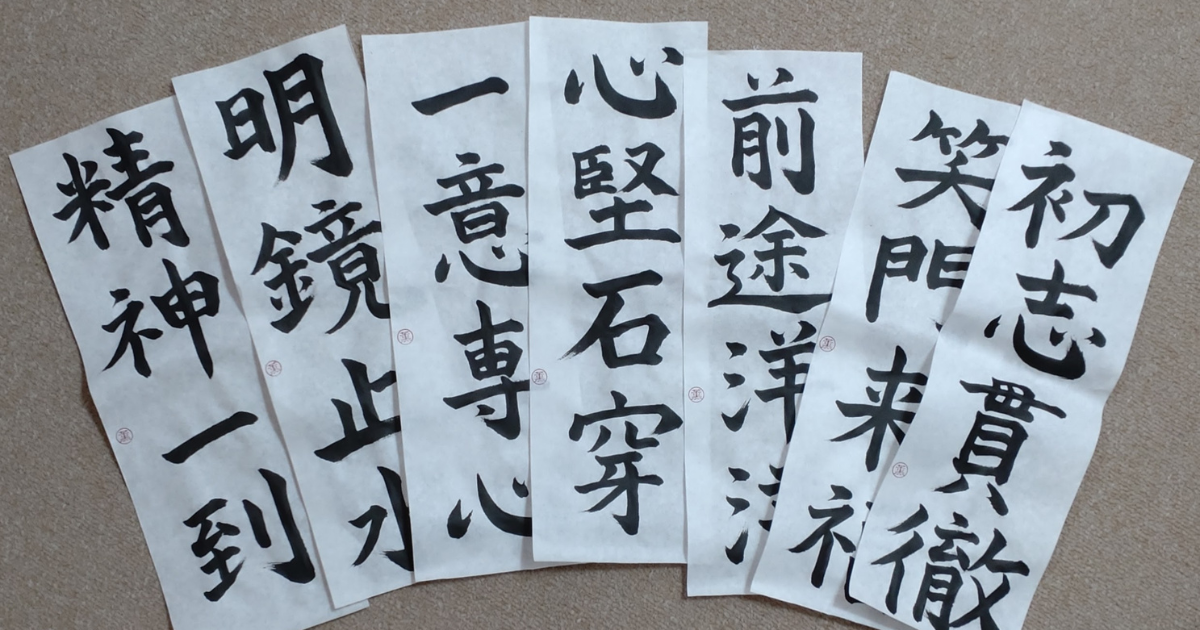 初志貫徹
笑門来福
前途洋洋
心堅石穿
一意専心
明鏡止水
精神一到